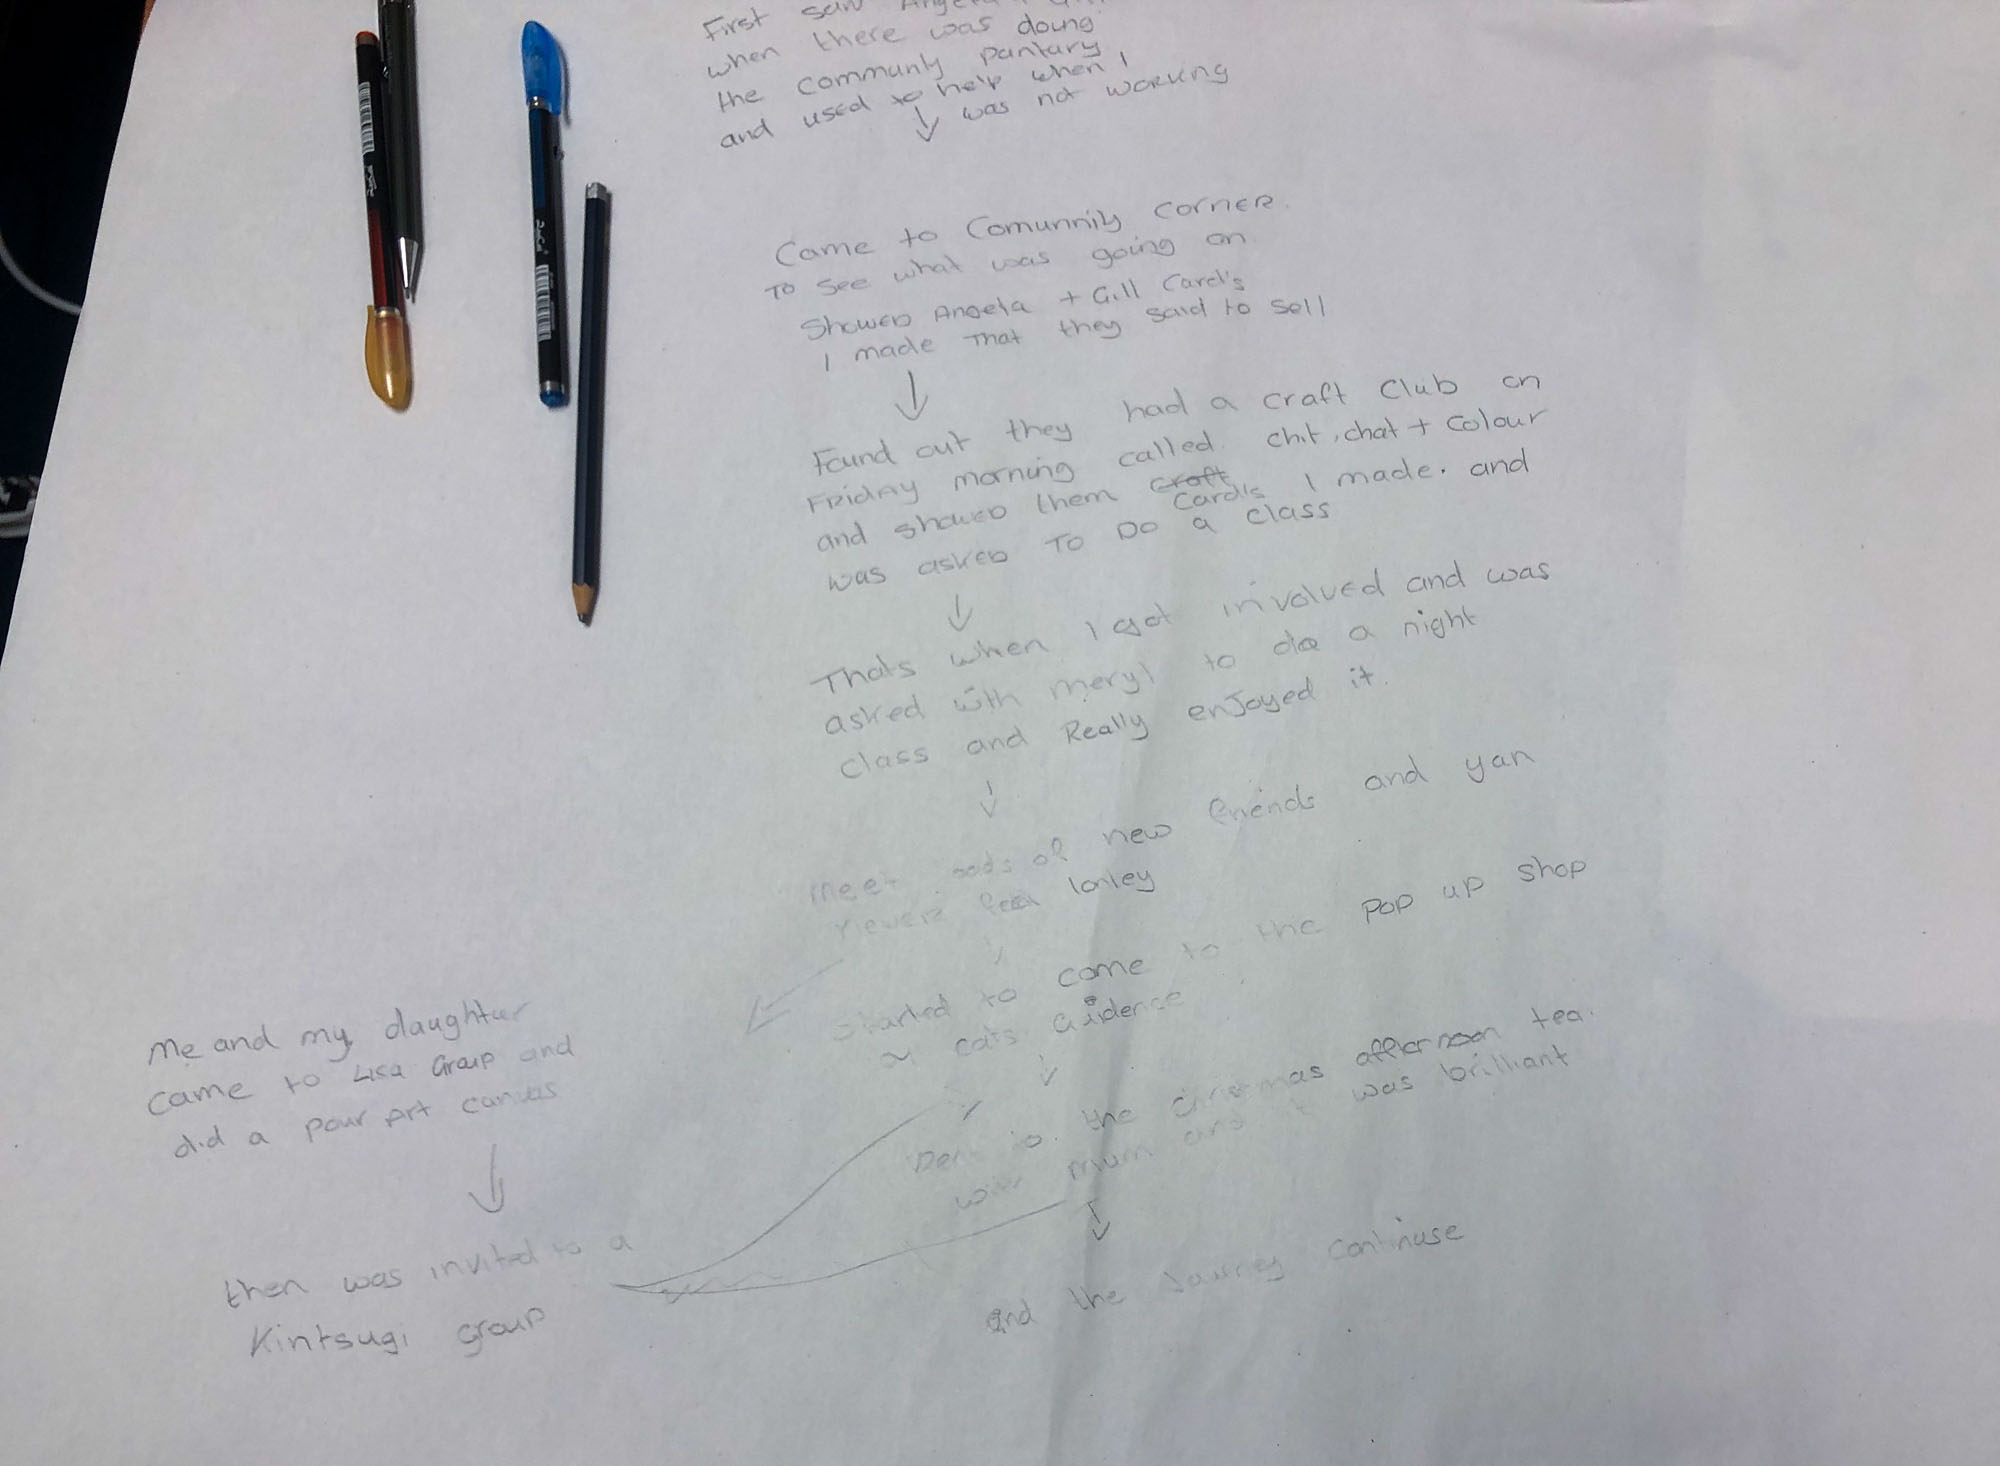 First saw Angela
when there was doung
the communly pantary
and used to help when I
was not working
Came to Comunnity corner.
To see what was going on.
Showed Angela + Gill Card's
I made That they said to sell
Found out they had a craft club on
Friday morning called. chit, chat + colour
and showed them craft
Card's I made. and
was asked To Do a class
Thats when I got involved and was
asked with meryl to do a night
class and Really enjoyed it.
meet of new friends and yan
never feel lonley
Started to come to the Pop up shop
Guidence
the christmas afternoon tea.
with mum and it was brilliant
and the Journey continuse
Me and my daughter
came to Lisa Group and
did a pour Art canvas
then was invited to a
Kintsugi group